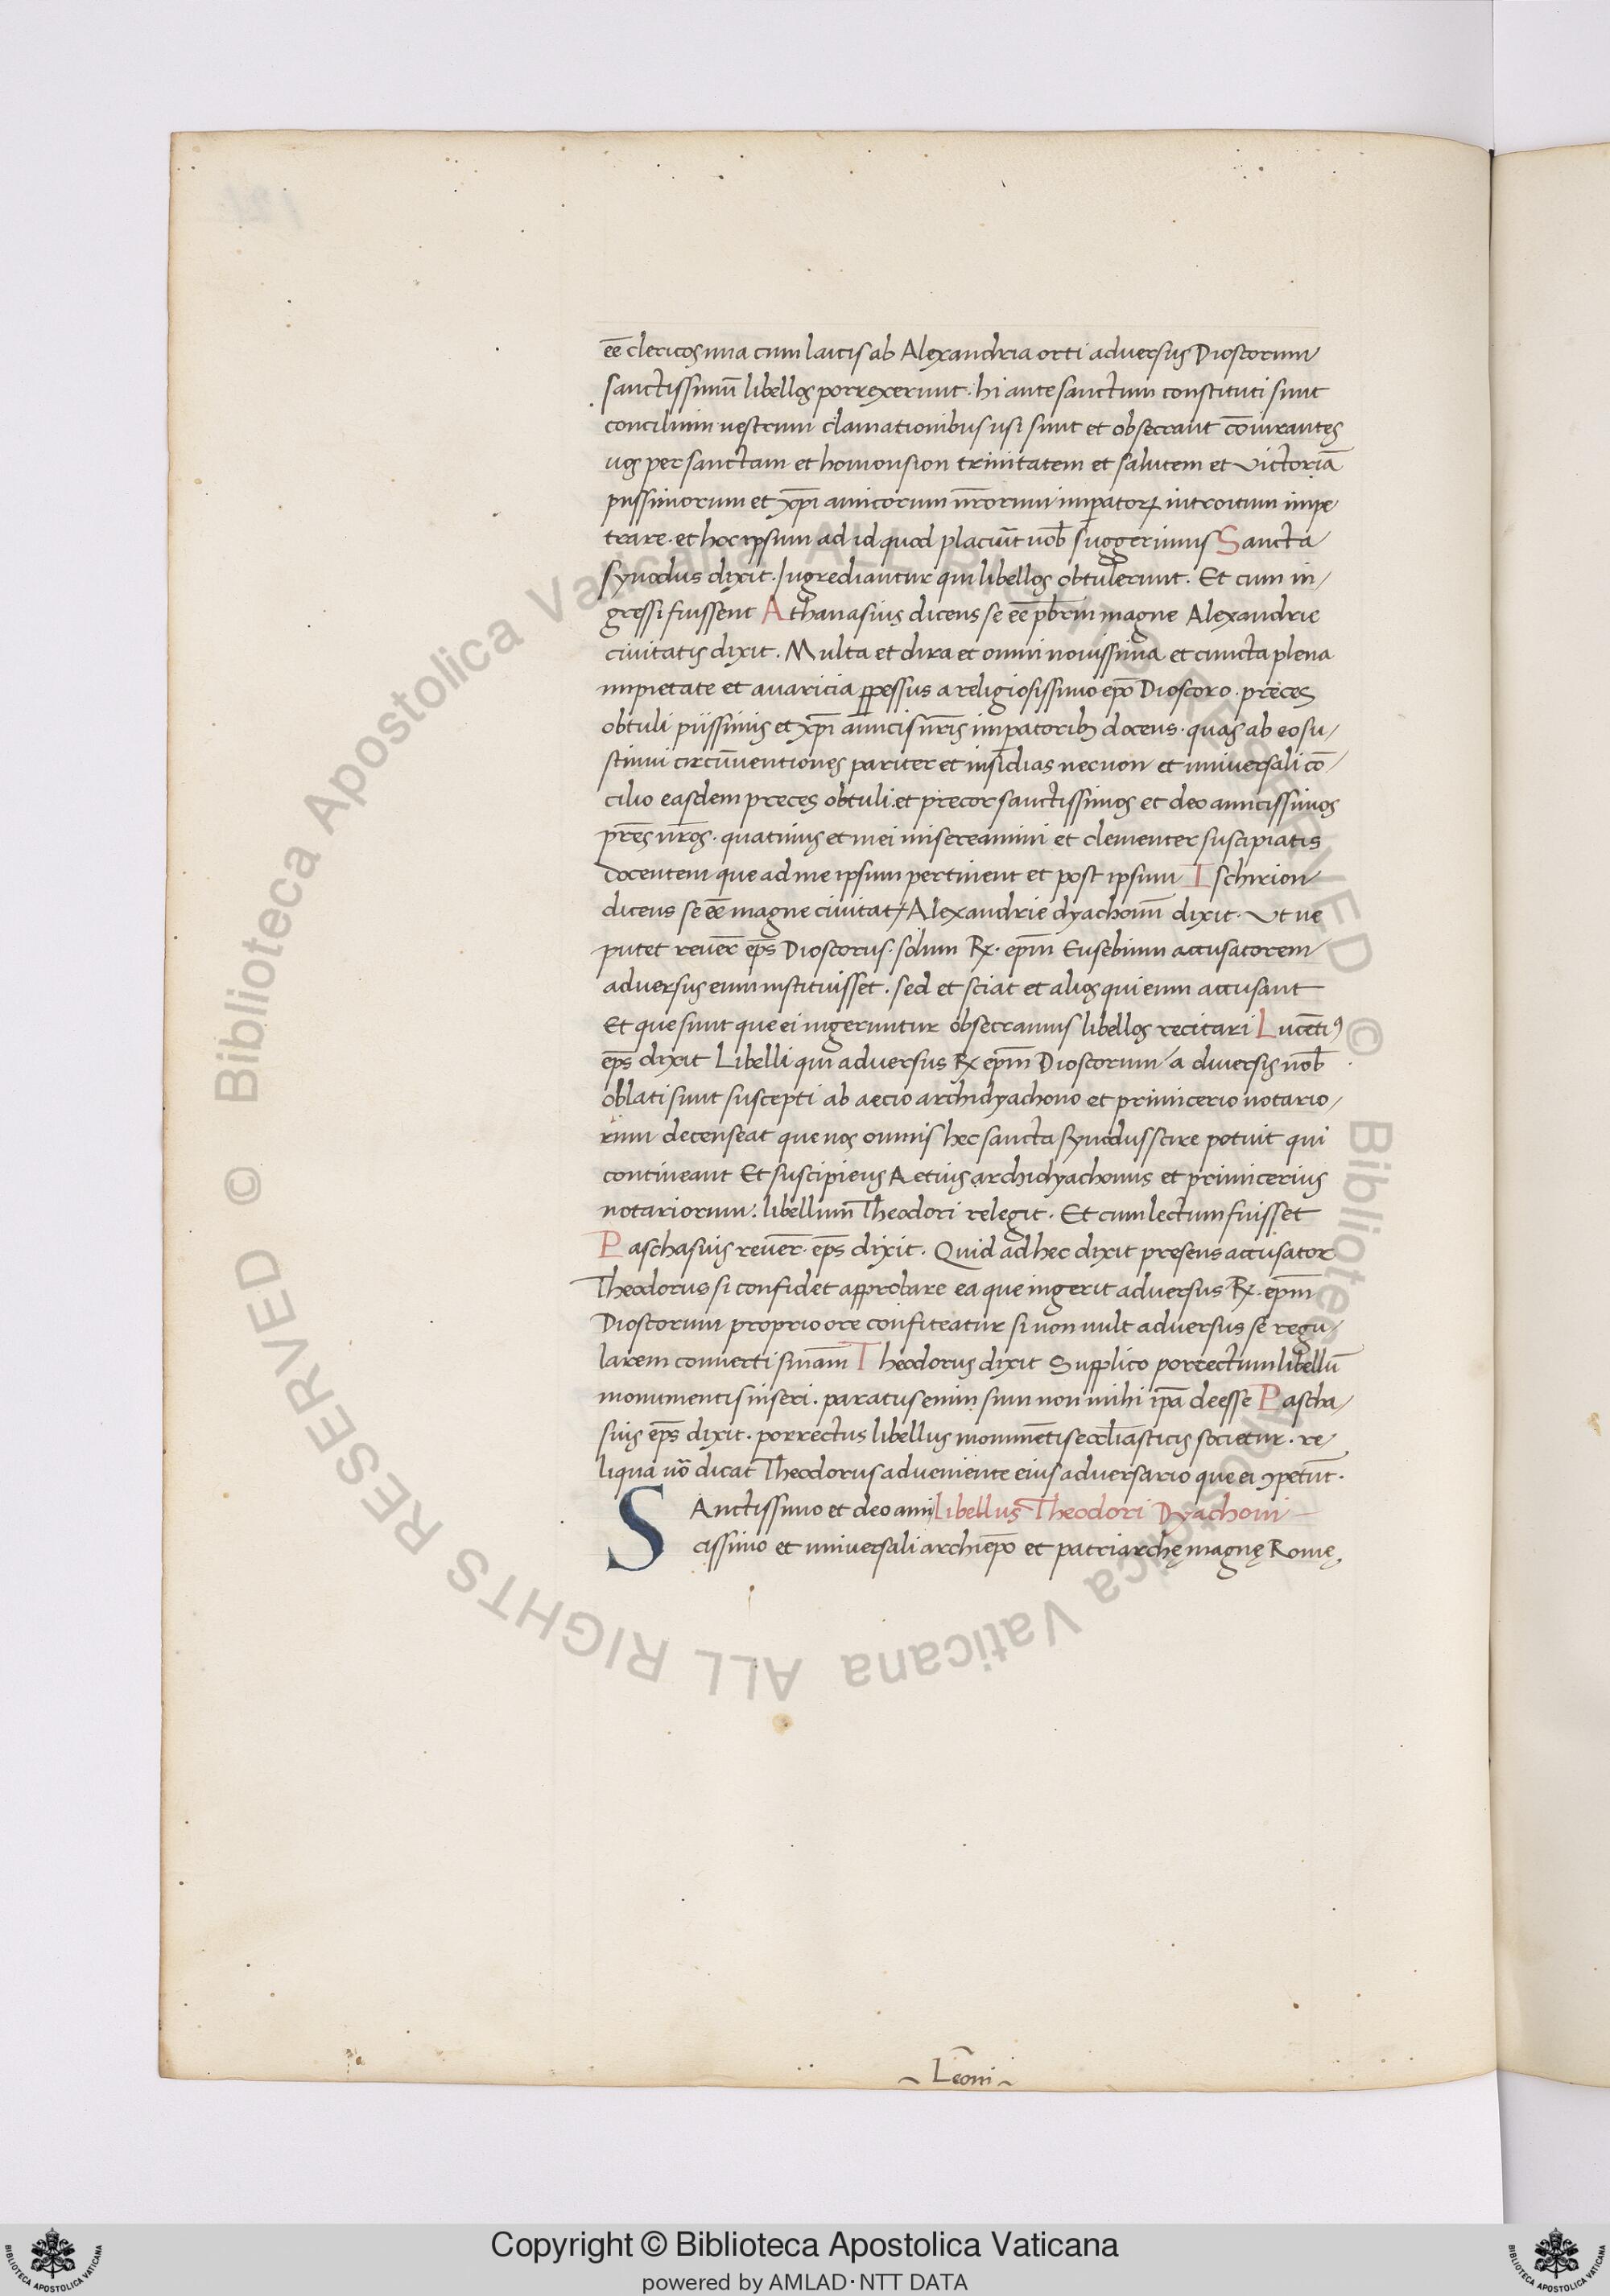 eē clericos una cum laicis ab Alexandria orti adversus Dioscorum
sanctissimū libellos porrexerunt · hi ante sanctum constituti sunt
concilium vestrum clamationibus usi sunt et obsecrant cōiurantes
vos per sanctam et homousion trinitatem et salutem et victoriā
piissimorum et xp̄i amicorum nr̄orum imp̱atoꝝ introitum impe
trare · et hoc ipsum ad id quod placuīt vob̄ suggerimus Sancta
synodus dixit · Ingrediantur qui libellos obtulerunt · Et cum in/
gressi fuissent Athanasius dicens se eē pb̄rm magne Alexandrie
civitatis dixit . Multa et dira et omni novissima et cuncta plena
impietate et avaricia ꝑpessus a religiosissimo ep̄o Dioscoro · preces
obtuli piissimis et xp̄i amicis nr̄is imꝑatorib; docens · quas ab eo su/
stinui circūventiones pariter et insidias necnon et universali cō/
cilio easdem preces obtuli . et precor sanctissimos et deo amicissimos
pr̄es nr̄os · quatinus et mei misereamini et clementer suscipiatis
docentem que ad me ipsum pertinent et post ipsum Ischirion
dicens se eē magne civitatꝭ Alexandrie dyachonū dixit · Ut ne
putet rever̄ ep̄s Dioscorus · solum Rx · ep̄m Eusebium accusatorem
adversus eum instituisset . sed et sciat et alios qui eum accusant
Et que sunt que ei ingeruntur obsecramus libellos recitari Lucētiꝯ
ep̄s dixit Libelli qui adversus Rx ep̄m Dioscorum a diversis nob̄
oblati sunt suscepti ab aecio archidyachono et primicerio notario/
rum decenseat que nos omnis hec sancta synodus scire potuit qui
contineant Et suscipiens Aetius archidyachonus et primicerius
notariorum . libellum Theodori relegit · Et cum lectum fuisset
Paschasius rever̄ · ep̄s dixit · Quid ad hec dixit presens accusator
Theodorus si confidet approbare ea que ingerit adversus Rx · ep̄m
Dioscorum proprio ore confiteatur si non vult adversus se regu/
larem converti sn̄iam Theodorus dixit Supplico porrectum libellū
monumentis inseri . paratus enim sum non mihi ip̄a deesse Pascha/
sius ep̄s dixit · porrectus libellus monumētis eccl̄iasticis societur · re/
liqua vō dicat Theodorus adveniente eius adversario que ei ꝯpetūt ·
SAnctissimo et deo ami Libellus Theodori Dyachoni
cissimo et universali archiep̄o et patriarchę magnę Romę,
Leoni
Copyright © Biblioteca Apostolica Vaticana
powered by AMLAD·NTT DATA
© Biblioteca Apostolica Vaticana ALL RIGHTS RESERVED © Biblioteca Apostolica Vaticana ALL RIGHTS RESERVED
BIBLIOTECA APOSTOLICA VATICANA
BIBLIOTECA APOSTOLICA VATICANA